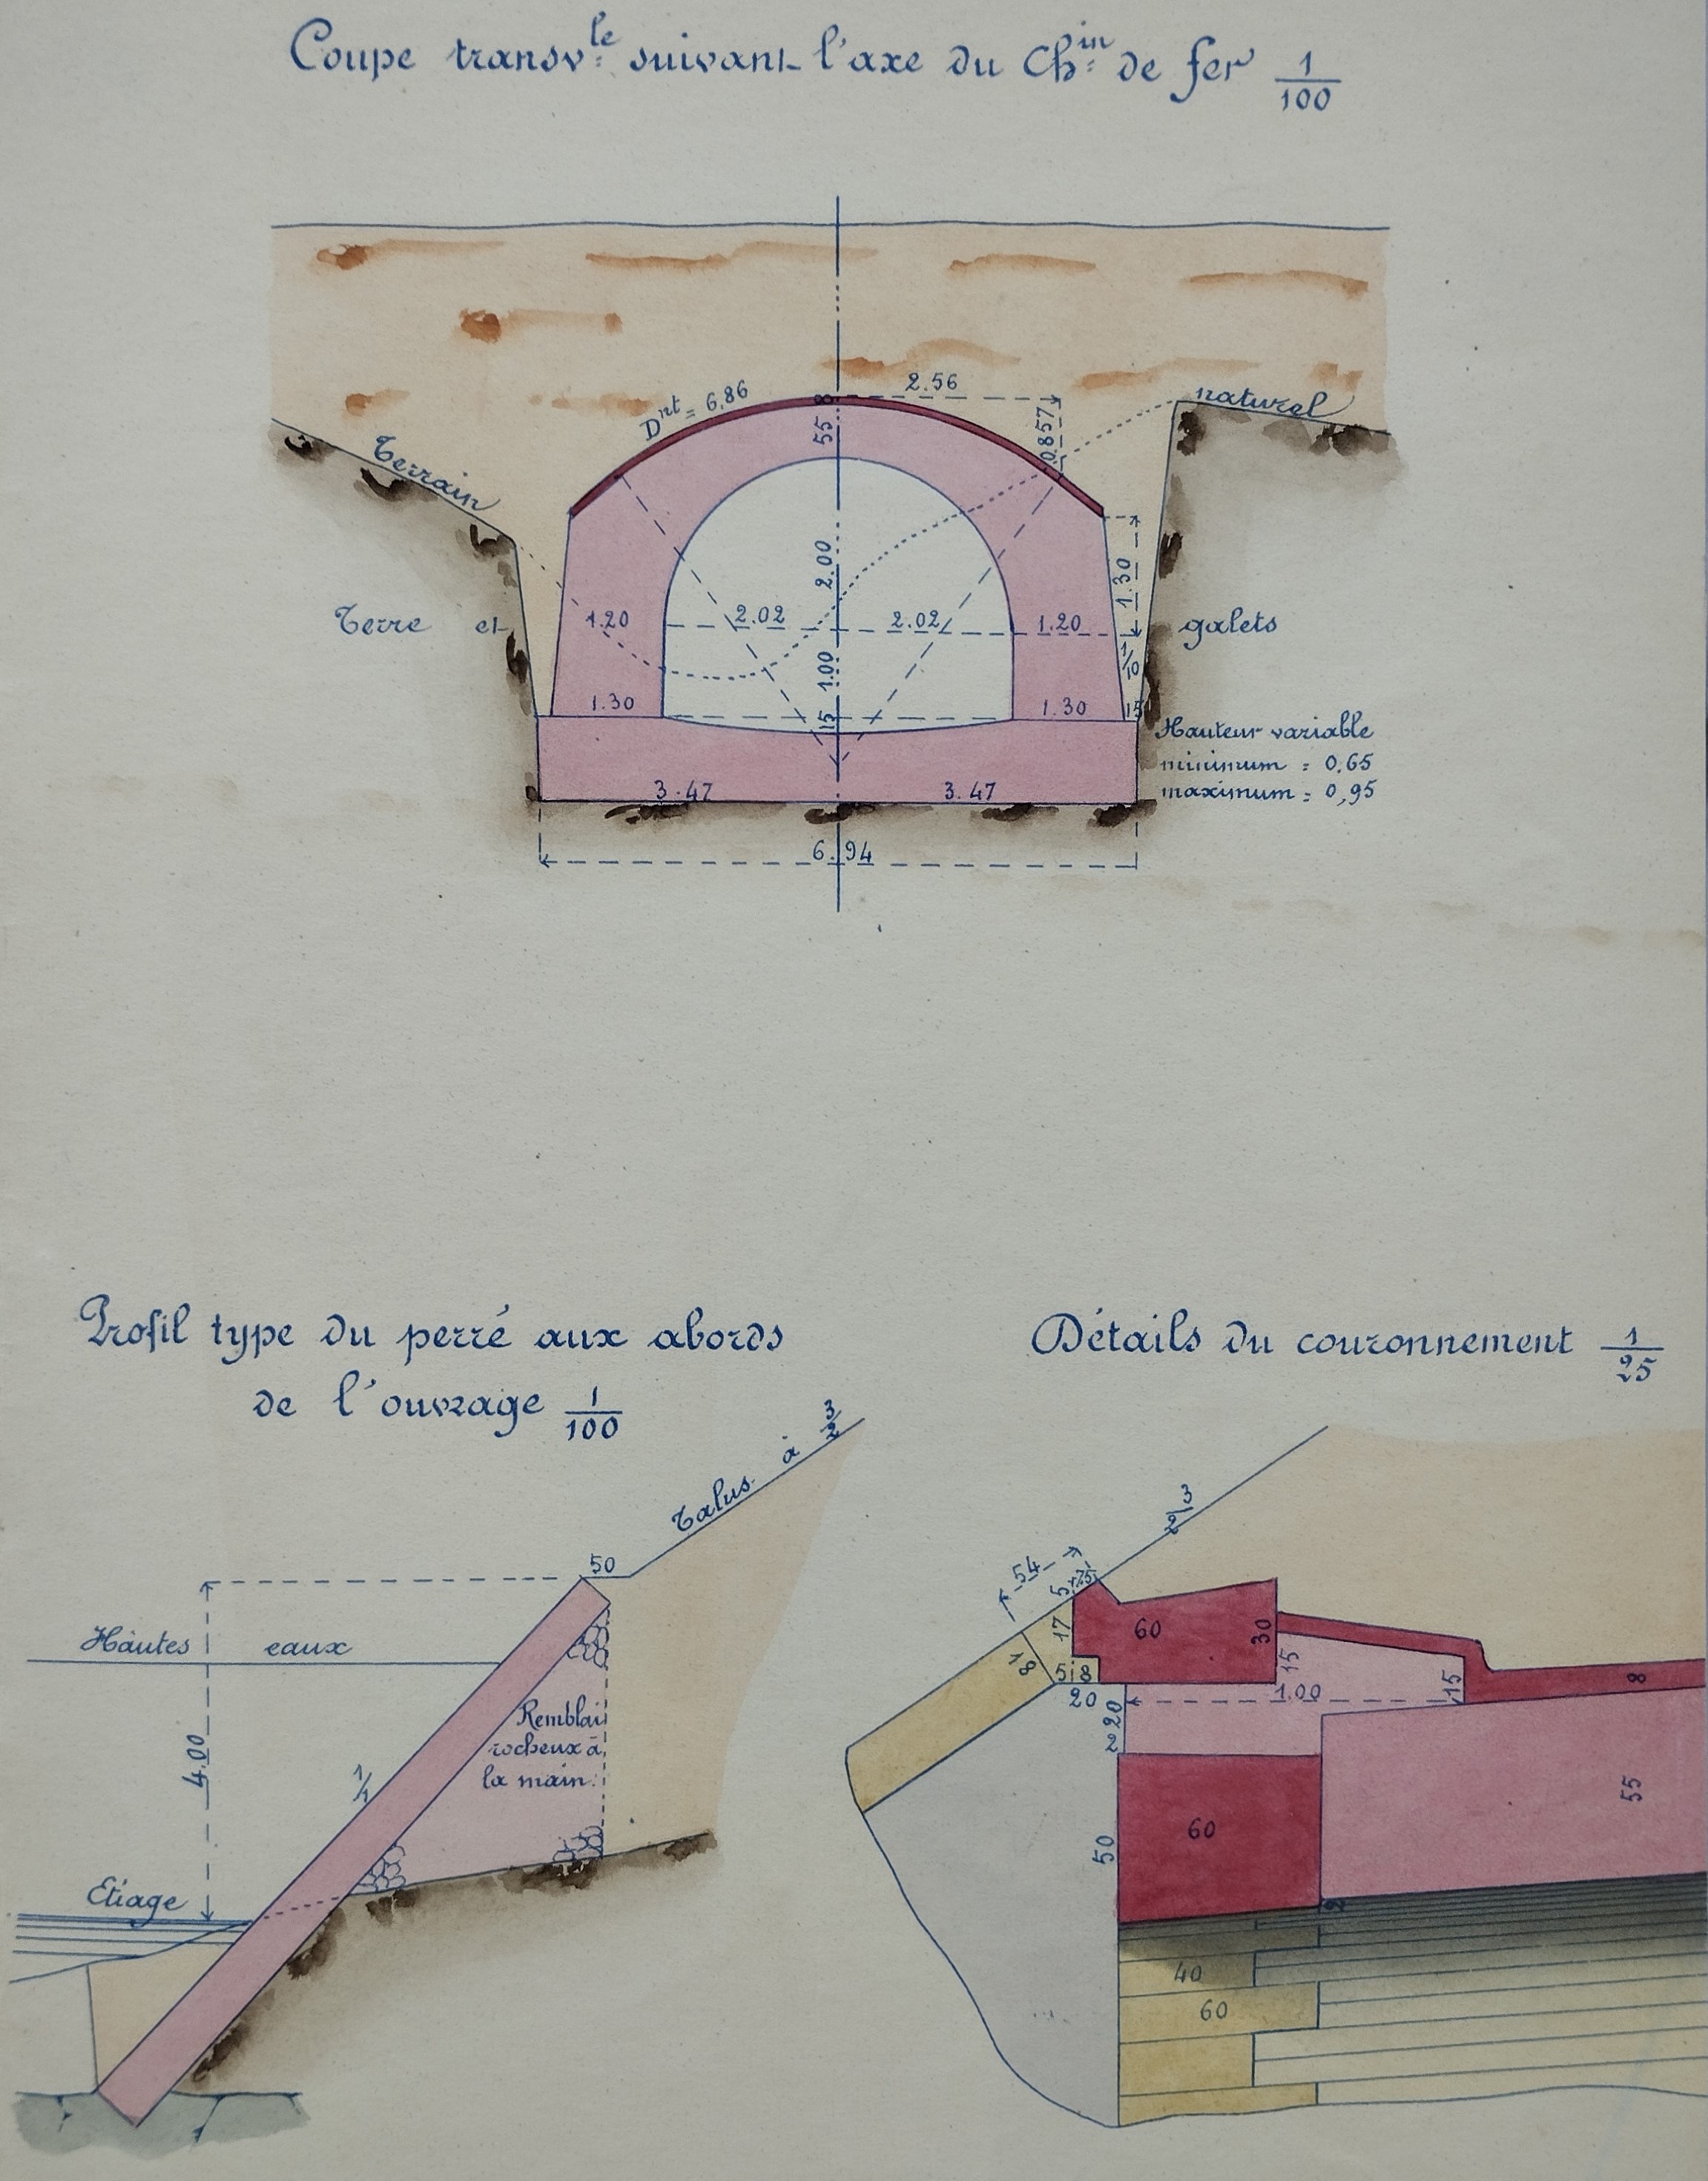 Coupe transv.le suivant l'axe du Ch.in de fer 1/100
Dnt = 6,86
8
2.56
55
0.857
naturel
Terrain
2.00
1.30
Terre et
1.20
2.02
2.02
1.20
galets
1.00
1/10
1.30
15
1.30
15
Hauteur variable
minimum = 0,65
maximum = 0,95
3.47
3.47
6.94
Profil type du perré aux abords
de l'ouvrage 1/100
Talus à 3/2
50
Hautes eaux
Remblai
rocheux à
la main.
4.00
1/1
Etiage
Détails du couronnement 1/25
3/2
54
5
17
60
30
18
15
20
1.00
15
8
2
20
55
60
50
2
40
60